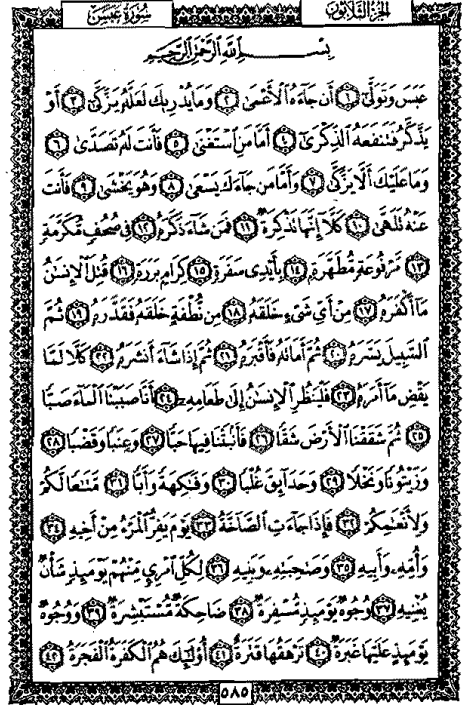 الجزء الثلاثون
سورة عبس
بِسْمِ اللَّهِ الرَّحْمَٰنِ الرَّحِيمِ
عَبَسَ وَتَوَلَّىٰ ١ أَن جَاءَهُ الْأَعْمَىٰ ٢ وَمَا يُدْرِيكَ لَعَلَّهُ يَزَّكَّىٰ ٣ أَوْ
يَذَّكَّرُ فَتَنفَعَهُ الذِّكْرَىٰ ٤ أَمَّا مَنِ اسْتَغْنَىٰ ٥ فَأَنتَ لَهُ تَصَدَّىٰ ٦
وَمَا عَلَيْكَ أَلَّا يَزَّكَّىٰ ٧ وَأَمَّا مَن جَاءَكَ يَسْعَىٰ ٨ وَهُوَ يَخْشَىٰ ٩ فَأَنتَ
عَنْهُ تَلَهَّىٰ ١٠ كَلَّا إِنَّهَا تَذْكِرَةٌ ١١ فَمَن شَاءَ ذَكَرَهُ ١٢ فِي صُحُفٍ مُّكَرَّمَةٍ
١٣ مَّرْفُوعَةٍ مُّطَهَّرَةٍ ١٤ بِأَيْدِي سَفَرَةٍ ١٥ كِرَامٍ بَرَرَةٍ ١٦ قُتِلَ الْإِنسَٰنُ
مَا أَكْفَرَهُ ١٧ مِنْ أَيِّ شَيْءٍ خَلَقَهُ ١٨ مِن نُّطْفَةٍ خَلَقَهُ فَقَدَّرَهُ ١٩ ثُمَّ
السَّبِيلَ يَسَّرَهُ ٢٠ ثُمَّ أَمَاتَهُ فَأَقْبَرَهُ ٢١ ثُمَّ إِذَا شَاءَ أَنشَرَهُ ٢٢ كَلَّا لَمَّا
يَقْضِ مَا أَمَرَهُ ٢٣ فَلْيَنظُرِ الْإِنسَٰنُ إِلَىٰ طَعَامِهِ ٢٤ أَنَّا صَبَبْنَا الْمَاءَ صَبًّا
٢٥ ثُمَّ شَقَقْنَا الْأَرْضَ شَقًّا ٢٦ فَأَنبَتْنَا فِيهَا حَبًّا ٢٧ وَعِنَبًا وَقَضْبًا ٢٨
وَزَيْتُونًا وَنَخْلًا ٢٩ وَحَدَائِقَ غُلْبًا ٣٠ وَفَٰكِهَةً وَأَبًّا ٣١ مَّتَٰعًا لَّكُمْ
وَلِأَنْعَٰمِكُمْ ٣٢ فَإِذَا جَاءَتِ الصَّاخَّةُ ٣٣ يَوْمَ يَفِرُّ الْمَرْءُ مِنْ أَخِيهِ ٣٤
وَأُمِّهِ وَأَبِيهِ ٣٥ وَصَٰحِبَتِهِ وَبَنِيهِ ٣٦ لِكُلِّ امْرِئٍ مِّنْهُمْ يَوْمَئِذٍ شَأْنٌ
يُغْنِيهِ ٣٧ وُجُوهٌ يَوْمَئِذٍ مُّسْفِرَةٌ ٣٨ ضَاحِكَةٌ مُّسْتَبْشِرَةٌ ٣٩ وَوُجُوهٌ
يَوْمَئِذٍ عَلَيْهَا غَبَرَةٌ ٤٠ تَرْهَقُهَا قَتَرَةٌ ٤١ أُولَٰئِكَ هُمُ الْكَفَرَةُ الْفَجَرَةُ ٤٢
٥٨٥